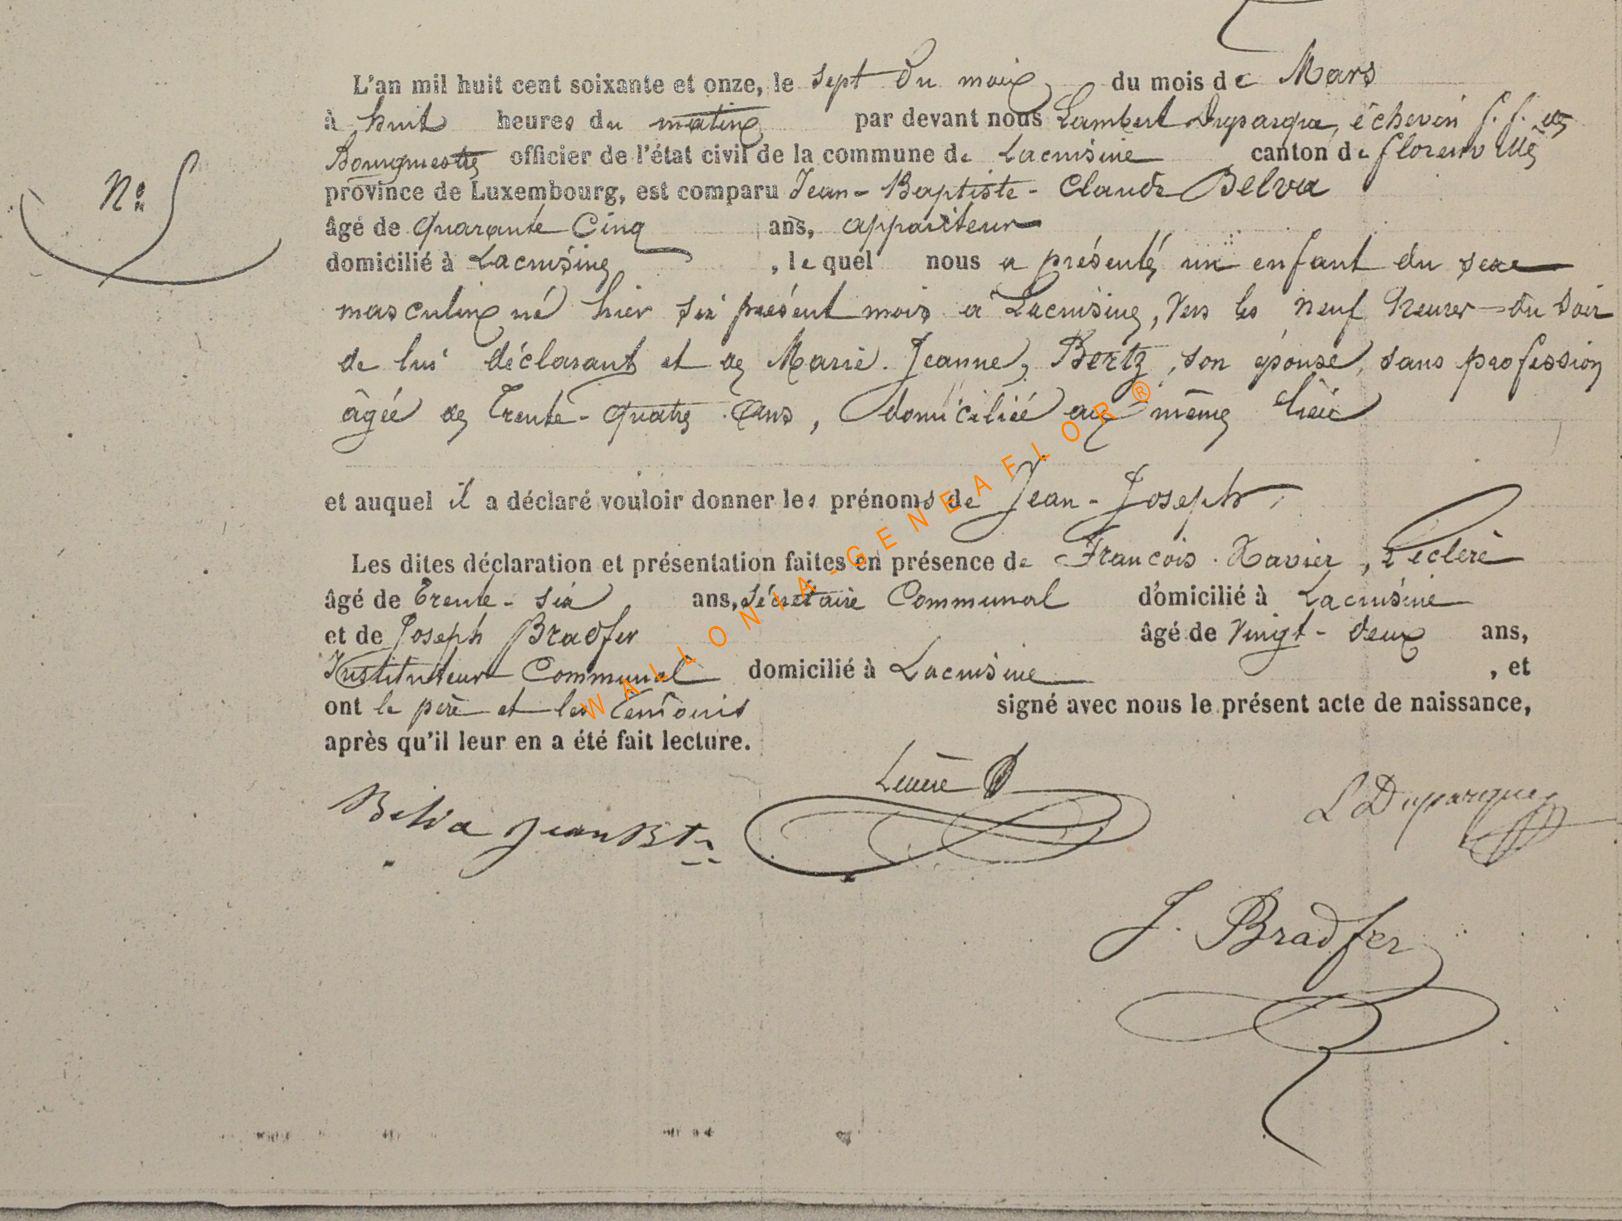 L'an mil huit cent soixante et onze, le sept du mois du mois de Mars
à huit heures du matin par devant nous Lambert Duparque, échevin f. f. de
Bourgmestre officier de l'état civil de la commune de Lacuisine canton de florenville
province de Luxembourg, est comparu Jean-Baptiste-Claude Belva
N° 5
âgé de quarante Cinq ans, appariteur
domicilié à Lacuisine , le quel nous a présenté un enfant du sexe
masculin né hier six présent mois à Lacuisine, vers les neuf heures du soir
de lui déclarant et de Marie. Jeanne, Bertz, son épouse, sans profession
âgée de trente-quatre ans, domiciliée au même lieu
et auquel il a déclaré vouloir donner les prénoms de Jean-Joseph
Les dites déclaration et présentation faites en présence de François. Xavier, Leclère
âgé de trente-six ans, sécretaire Communal domicilié à Lacuisine
et de Joseph Bradfer âgé de vingt-deux ans,
Instituteur Communal domicilié à Lacuisine , et
ont le père et les témoins signé avec nous le présent acte de naissance,
après qu'il leur en a été fait lecture.
Belva Jean Bte
L Duparque
J. Bradfer
WALLONIA-GENEAFLOR®